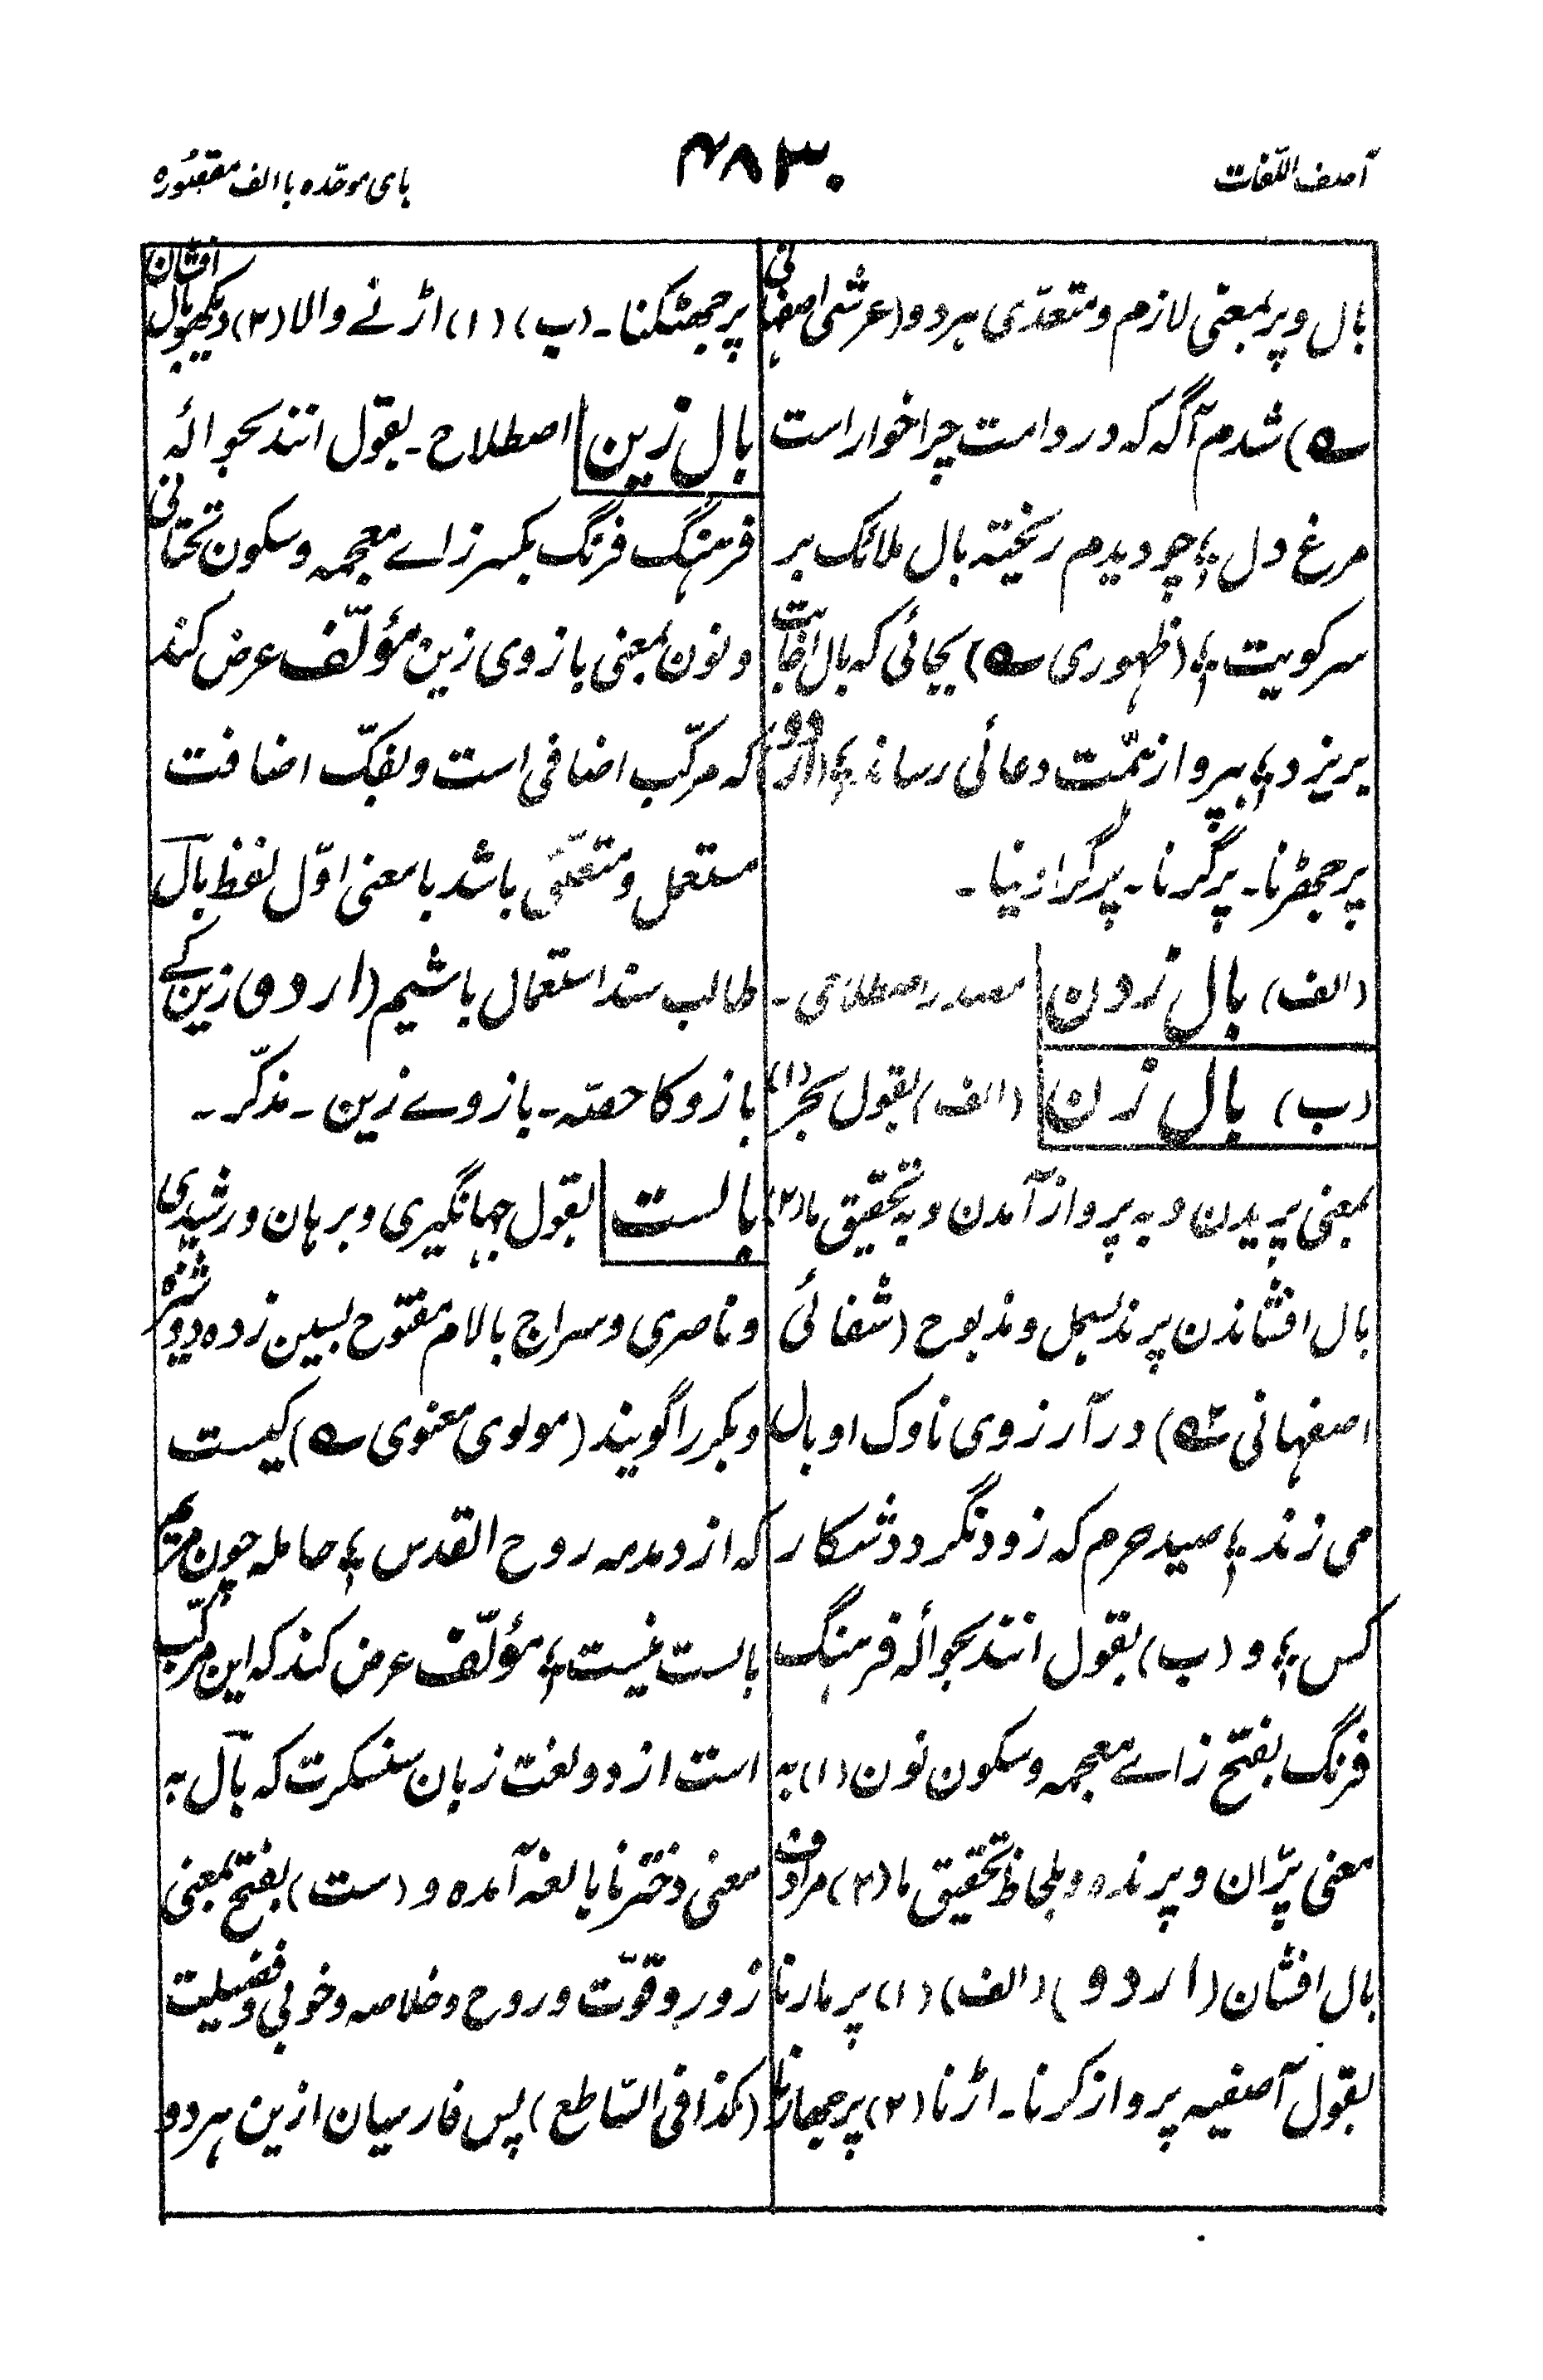 آصف اللّغات
۴۸۳۰
بای موحّده با الف مقصُوره
بال و پر بمعنی لازم و متعدّی هر دو (عرشی اصفهانی
ے) شدم آگه که در دامت چرا خوار است
مرغ دل ؛ چو دیدم ریخته بال ملائک بر
سر کویت ؛ (ظهوری ے) بجائی که بال اجابت
بریزد ؛ بپرواز همّت دعائی رساند ؛ (اردو)
پر جھڑنا ۔ پر گرنا ۔ پر گرا دنیا ۔
(الف) بال زدن مصدر اصطلاحی ۔
(ب) بال زن (الف) بقول بحر (۱)
بمعنی پریدن و به پرواز آمدن و به تحقیق ما (۲)
بال افشاندن پرند بسمل و مذبوح (شفائی
اصفهانی ے) در آرزوی ناوک او بال
می زند ؛ صید حرم که زود نگردد شکار
کس ؛ و (ب) بقول انند بحوالهٔ فرهنگ
فرنگ بفتح زاے معجمه و سکون نون (۱) به
معنی پرّان و پرنده و بلحاظ تحقیق ما (۲) مرادف
بال افشان (اردو) (الف) (۱) پر مارنا
بقول آصفیه پرواز کرنا ۔ اڑنا (۲) پر جھاڑنا
پر جھٹکنا ۔ (ب) (۱) اڑنے والا (۲) دیکھو بال افشان
بال زین اصطلاح ۔ بقول انند بحوالهٔ
فرهنگ فرنگ بکسر زاے معجمه و سکون تحتانی
و نون بمعنی بازوی زین مؤلّف عرض کند
که مرکّب اضافی است و بفکّ اضافت
مستعمل و متعلّق باشد با معنی اوّل لفظ بال
طالب سند استعمال باشیم (اردو) زین کے
بازو کا حصّه ۔ بازوے زین ۔ مذکّر ۔
بالست بقول جهانگیری و برهان و رشیدی
و ناصری و سراج بالام مفتوح بسین زده دوشیزه
و بکر را گویند (مولوی معنوی ے) کیست
که از دمدمه روح القدس ؛ حامله چون مریم
بالست نیست ؛ مؤلّف عرض کند که این مرکّب
است از دو لغت زبان سنسکرت که بال به
معنی دختر نابالغه آمده و (ست) بفتح بمعنی
زور و قوّت و روح و خلاصه و خوبی و فضیلت
(کذا فی السّاطع) پس فارسیان ازین هر دو